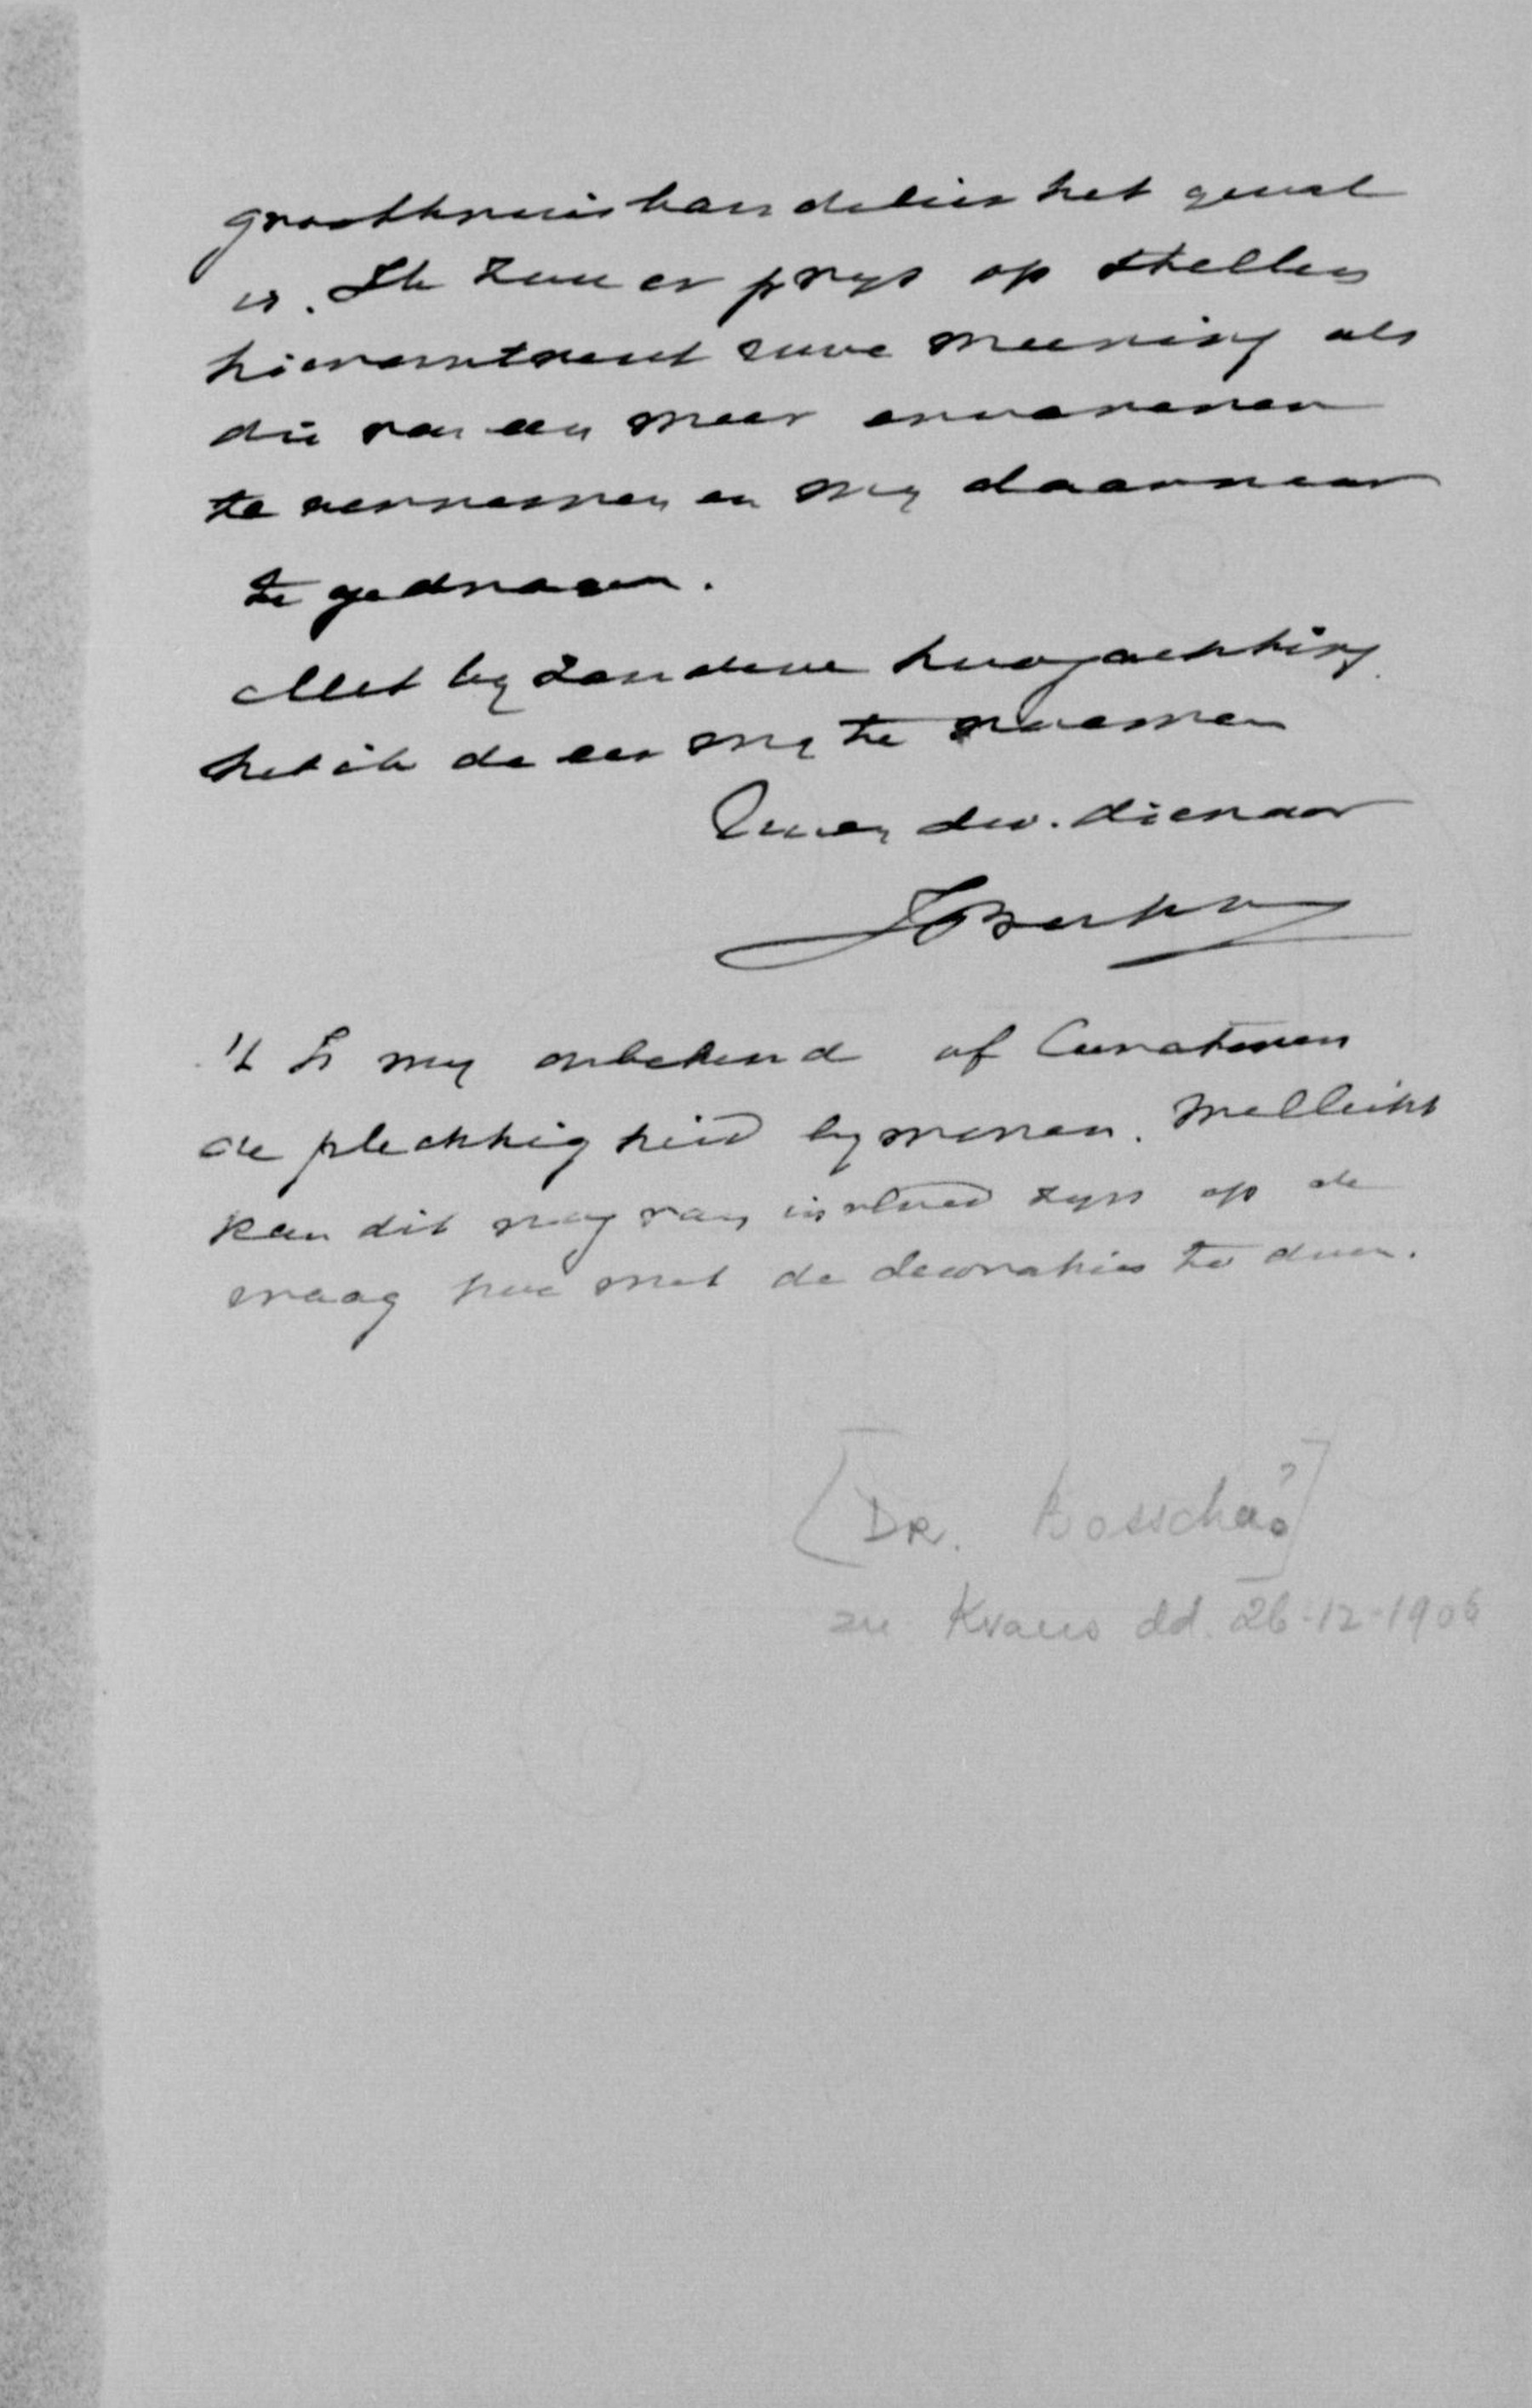 grootkruisbandelier het geval
is. Ik zou er prijs op stellen
hieromtrent uwe meening als
die van een meer ervarenen
te vernemen en mij daarnaar
te gedragen.
Met bijzondere hoogachting
heb ik de eer mij te noemen
Uwen dw. dienaar
't Is mij onbekend of Curatoren
de plechtigheid bijwonen. Mellicht
kan dit nog van invloed zijn op de
vraag hoe met de decoraties te doen.
[DR. Bosscha?]
Kraus dd. 26-12-1906